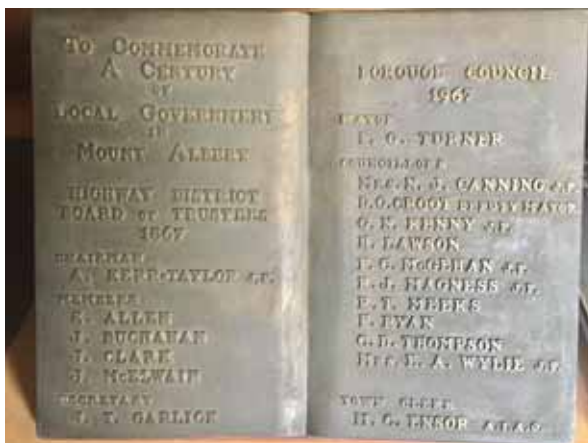 TO COMMEMORATE
A CENTURY
OF
LOCAL GOVERNMENT
IN
MOUNT ALBERT
HIGHWAY DISTRICT
BOARD OF TRUSTEES
1867
CHAIRMAN
A. KERR-TAYLOR J.P.
MEMBERS
ALLEN
J. BUCHANAN
J. CLARK
J. McELWAIN
SECRETARY
GARLICK
BOROUGH COUNCIL
1967
MAYOR
TURNER
COUNCILLORS
MRS. J. CANNING J.P.
R.O.GROOT DEPUTY MAYOR
KENNY J.P.
H. LAWSON
McGEHAN J.P.
J. MAGNESS J.P.
T. MEEKS
F. RYAN
THOMPSON
MRS. A. WYLIE J.P.
TOWN CLERK
ENSOR